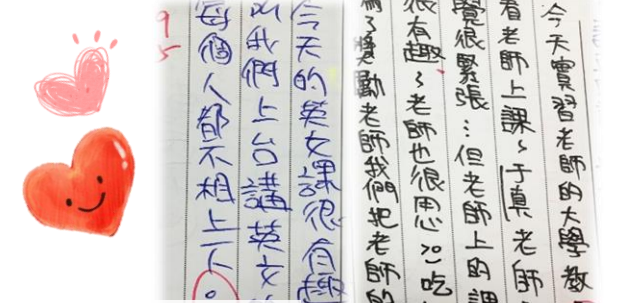 今天實習老師的大學教
看老師上課~于真老師
覺很緊張…但老師上的課
很有趣~老師也很 吃
了獎勵老師我們把老師的
今天的英文課很有趣
我們上台講英文
每個人都不相上下。